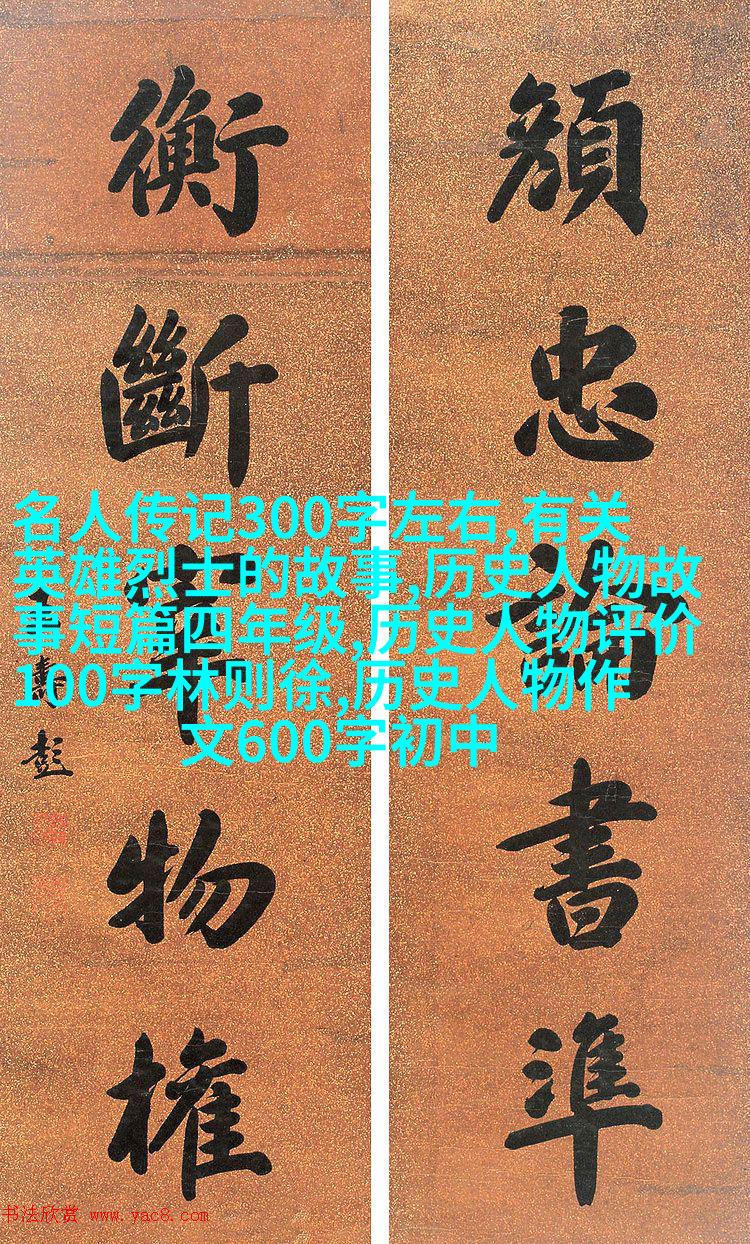 忠書準
衡斷物權
壽彭
名人传记300字左右,有关
英雄烈士的故事,历史人物故
事短篇四年级,历史人物评价
100字林则徐,历史人物作
文600字初中
书法欣赏 www.yac8.com